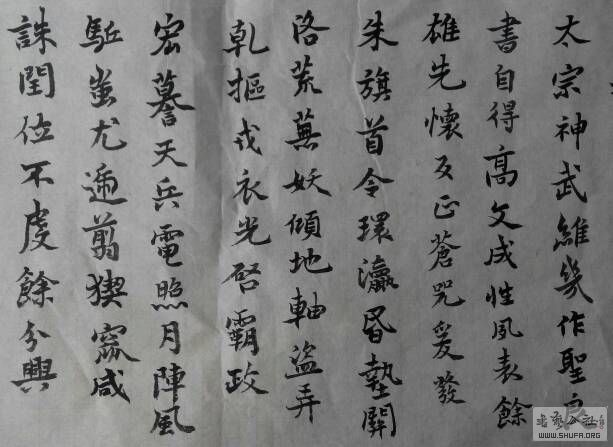 太宗神武維幾作聖
書自得高文成性風表餘
雄先懷反正蒼咒爰發
朱旗首令環瀛昏墊關
洛荒蕪妖傾地軸盜弄
乾摳戎衣光啓霸政
宏謩天兵電照月陣風
駈蚩尤遞翦猰窳咸
誅閏位不虔餘分興
WWW.SHUFA.ORG